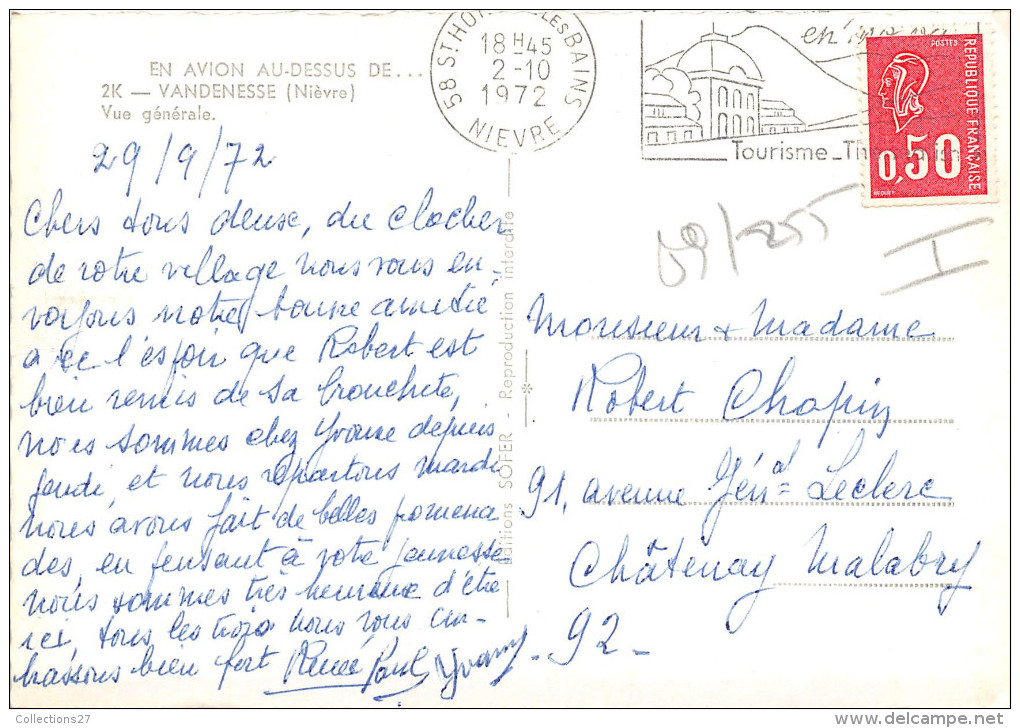 EN AVION AU-DESSUS DE...
2K — VANDENESSE (Nièvre)
Vue générale.
29/9/72
Chers tous deux, du clocher
de votre village nous vous en-
voyons notre bonne amitié
avec l'espoir que Robert est
bien remis de sa bronchite,
nous sommes chez Yvonne depuis
jeudi, et nous repartons mardi
nous avons fait de belles promena
des, en pensant à votre jeunesse
nous sommes très heureux d'être
ici, tous les trois nous vous em-
brassons bien fort Renée Paul Yvonne
Editions SOFER - Reproduction interdite
58 ST HONORE LES BAINS
18H45
2-10
1972
NIEVRE
Tourisme
POSTES
REPUBLIQUE FRANÇAISE
0,50
I
Monsieur & Madame
Robert Chapin
91, avenue Génál Leclerc
Châtenay Malabry
92
Collections27
www.delcampe.net